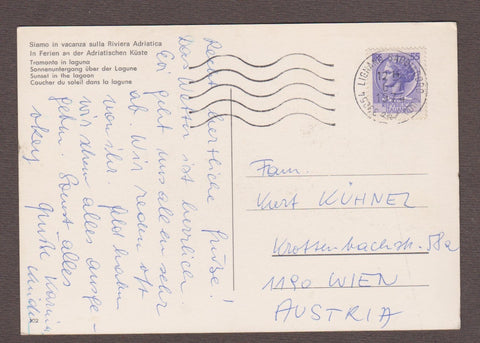 Siamo in vacanza sulla Riviera Adriatica
In Ferien an der Adriatischen Küste
Tramonto in laguna
Sonnenuntergang über der Lagune
Sunset in the lagoon
Coucher du soleil dans la lagune
Recht herzliche Grüße!
Das Wetter ist herrlich.
geht uns allen sehr
ab. Wir reden oft
von ihr. Geld haben
wir schon alles ausge-
geben. Sonst alles
okey
Grüße
Fam.
Kurt KÜHNEL
Krottenbachstr. 58a
1190 WIEN
AUSTRIA